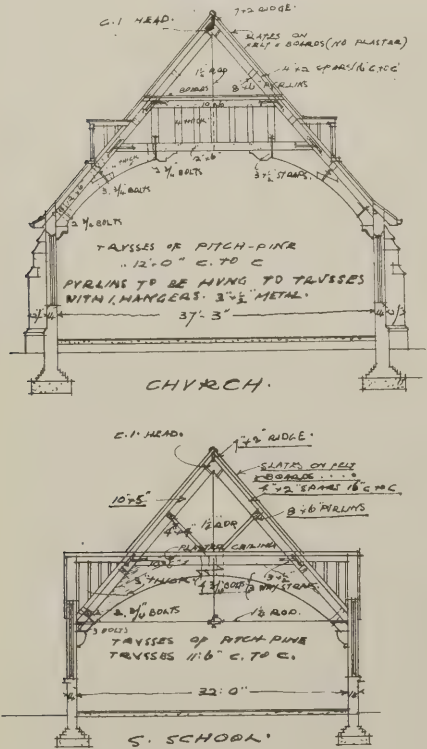 C.I. HEAD.
7"×2" RIDGE.
SLATES ON
FELT & BOARDS (NO PLASTER)
1½" ROD
4"×2" SPARS 16" C. TO C.
BOARDS
8"×6" PVRLINS
THICK
THICK
2"×6"
3. ¾" BOLTS
2 ¾" BOLTS
3"×½" STRAPS.
2 ¾" BOLTS
TRVSSES OF PITCH-PINE
12'-0" C. TO C
PVRLINS TO BE HVNG TO TRVSSES
WITH I. HANGERS. 3"×½" METAL.
37'-3"
CHVRCH.
C.I. HEAD.
7"×2" RIDGE.
SLATES ON FELT
BOARDS
4"×2" SPARS 16" C. TO C
10"×5"
8"×6" PVRLINS
PLASTER CEILING
STRAPS
2. ¾" BOLTS
ROD.
3 BOLTS
TRVSSES OF PITCH-PINE
TRVSSES 11'.6" C. TO C.
22'.0"
S. SCHOOL.